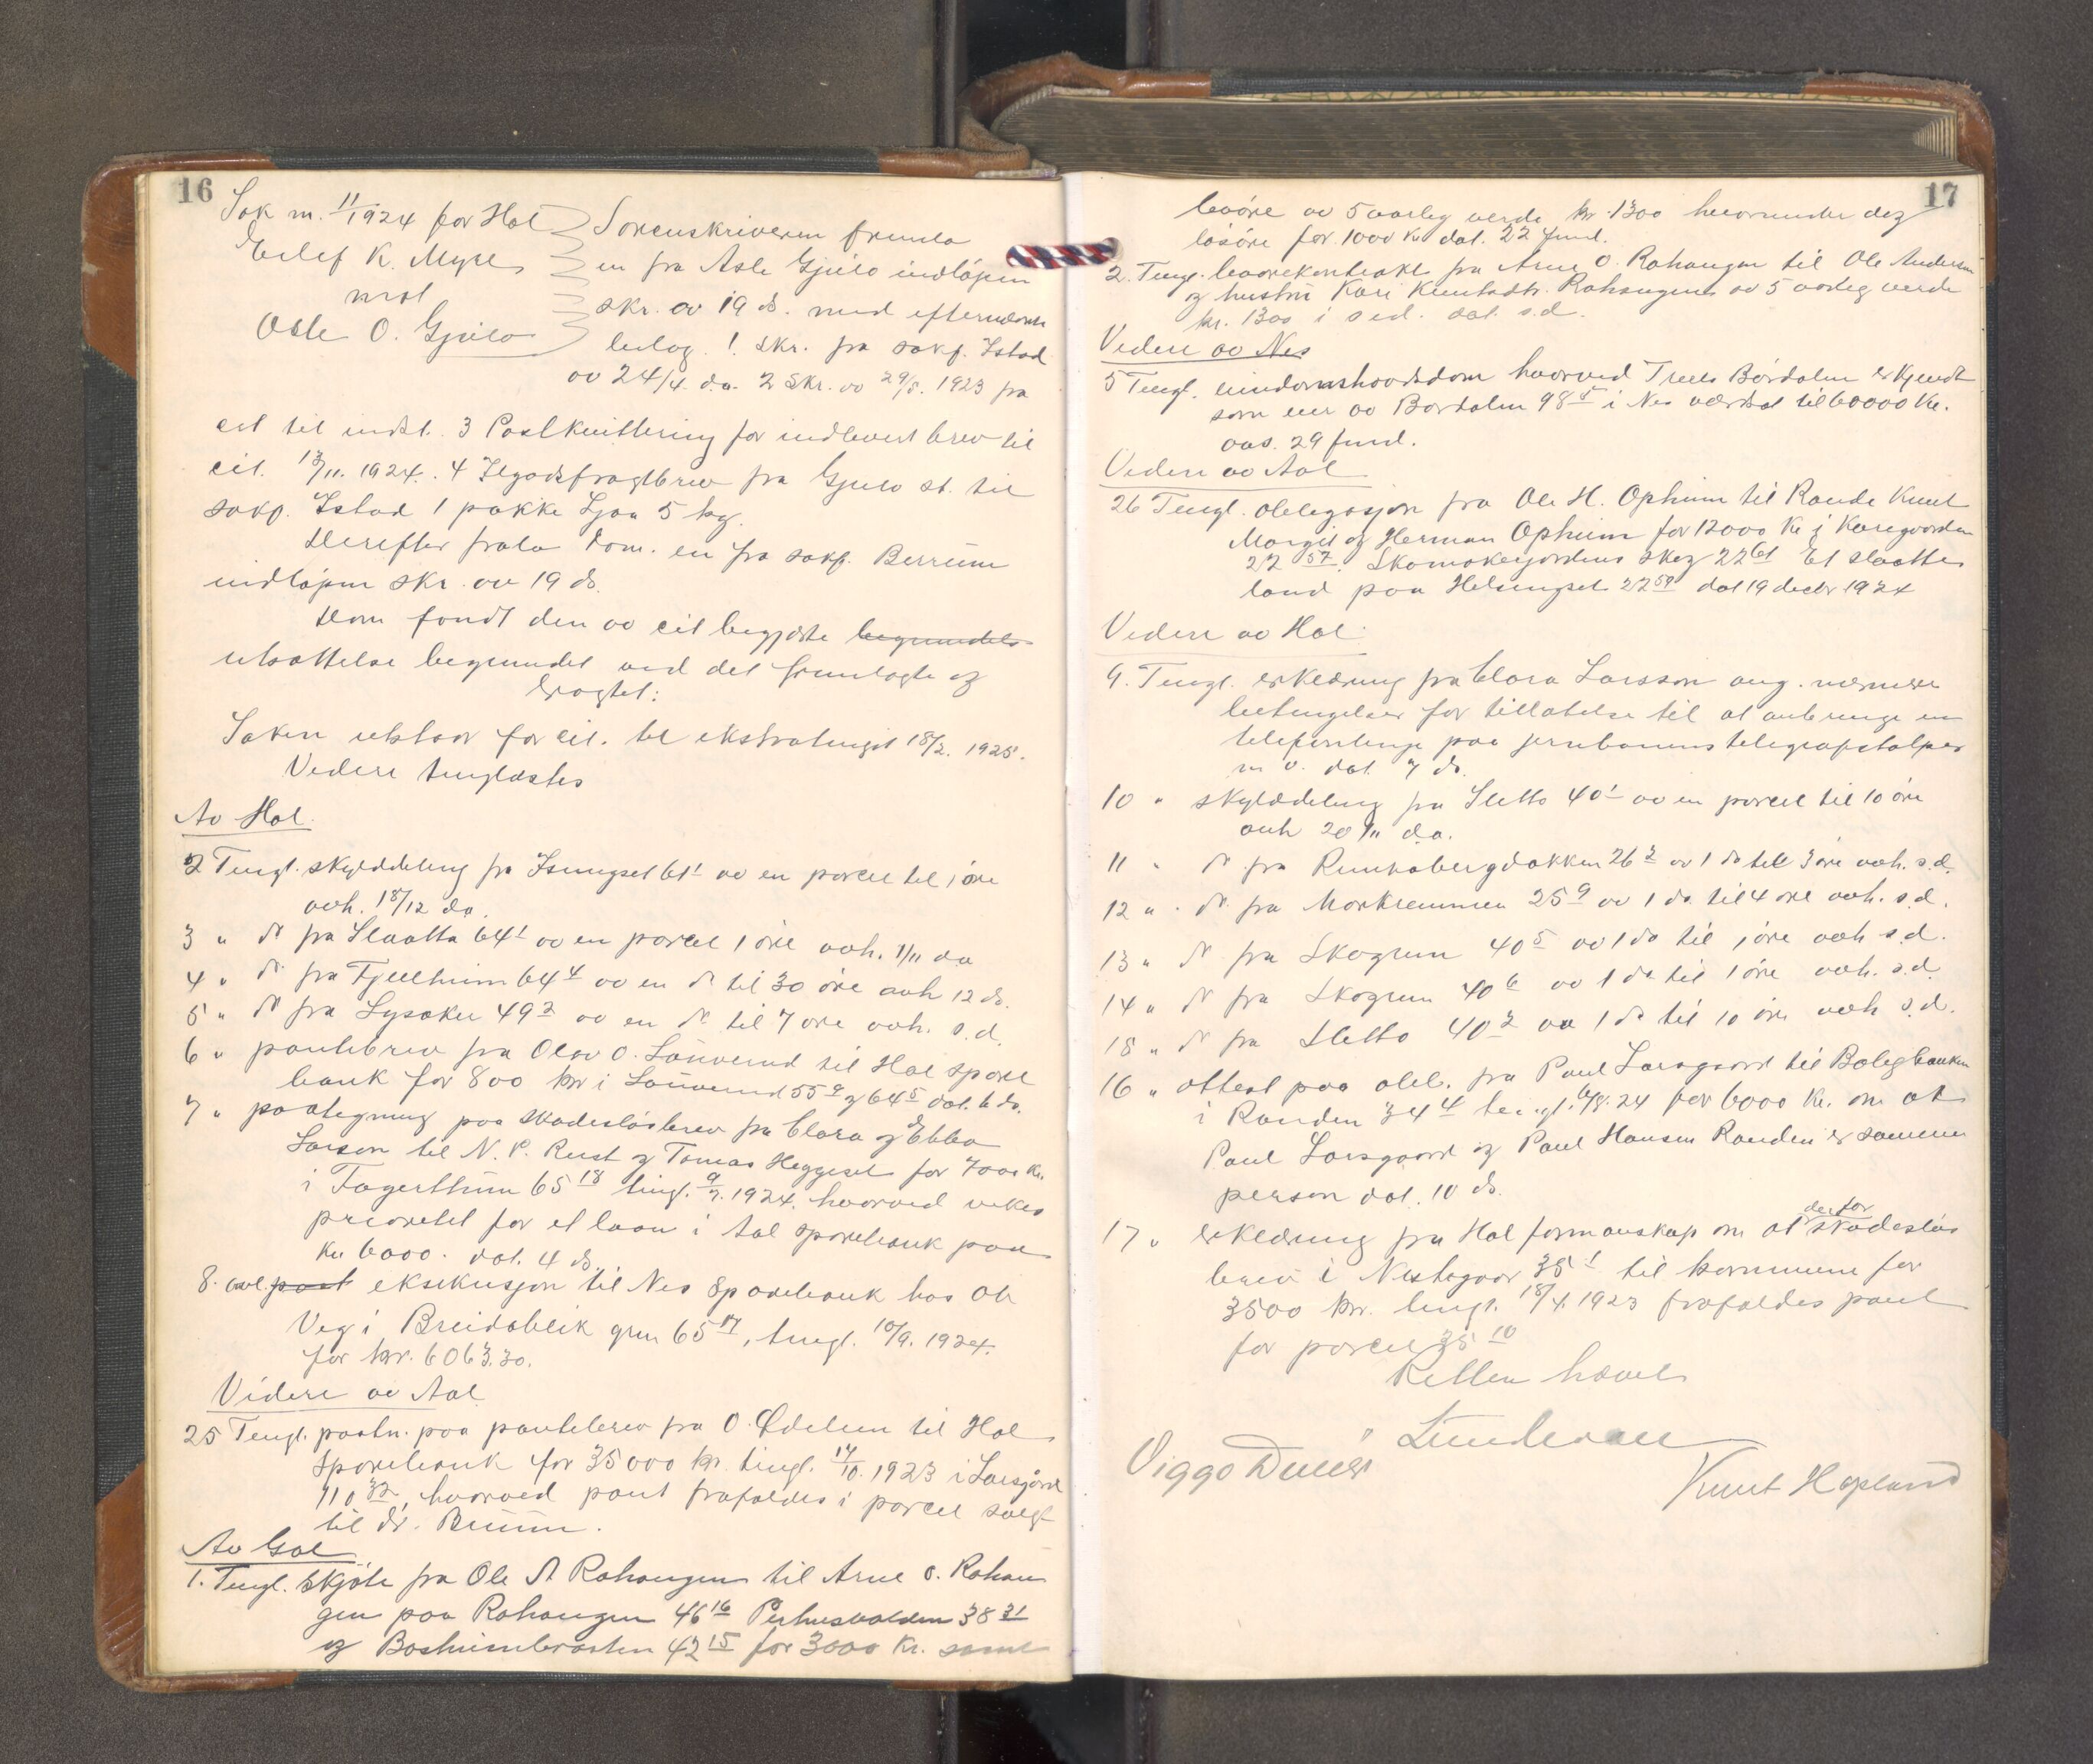 16
Sak nr. 11/1924 for Hol
Eilef K. Myre
mot
Asle O. Gjelo
Sorenskriveren fremla
en fra Asle Gjelo indløpen
skr. av 19 ds. med efternævnte
bilag. 1. skr. fra sakf. Istad
av 24/4. d.a. 2 Skr. av 29/8. 1923 fra
cit til indst. 3 Postkvittering for indlevert brev til
cit. 13/11. 1924. 4 Ilgodsfragtbrev fra Gjelo st. til
sakf. Istad 1 pakke Ljaa 5 kg.
Herefter fremla dom. en fra sakf. Berrum
indløpen skr. av 19 ds.
Dom. fandt den av cit begjærte begrundels
utsættelse begrundet ved det fremlagte og
bragtes:
Saken utstaar for cit. til ekstratinget 18/2. 1925.
Videre tinglæstes
Av Hol.
2 Tingl. skylddeling fra Isungset 61¹ av en parcel til 1 øre
avh. 18/12 da.
3 " do fra Slaatta 64¹ av en parcel 1 øre avh. 1/11 da
4 " do fra Fjellheim 64⁴ av en do til 30 øre avh 12 ds.
5 " do fra Lysaker 49² av en do til 7 øre avh. s.d.
6 " pantebrev fra Olav O. Launerud til Hol spare
bank for 800 kr i Launerud 55⁹ og 64⁵ dat. 6 ds.
7 " paategning paa skadesløsbrev fra Clara og Ebba
Larson til N. P. Rust og Tomas Heggeset for 7000 kr.
i Fagerheim 65¹⁸ tingl. 9/7. 1924. hvorved vikes
prioritet for et laan i Aal sparebank paa
kr 6000. dat. 4 ds.
8. avl. pant eksekusjon til Nes Sparebank hos Ole
Veg i Breidablik gnr 65¹⁷, tingl. 10/9. 1924.
for kr. 6063.30.
Videre av Aal
25 Tingl. paatn. paa pantebrev fra O. Ødelien til Hol
Sparebank for 35000 kr. tingl. 17/10. 1923 i Larsgård
110³², hvorved pant frafaldes i parcel solgt
til dr. Bruun.
Av Gol
1. Tingl. skjøte fra Ole A Rohaugen til Arne O. Rohau
gen paa Rohaugen 46¹⁶ Perhusvolden 38³¹
og Boshimbraaten 42¹⁵ for 3000 Kr. samt
17
levøre av 5 aarlig verdi kr. 1300 herunder dog
løsøre for 1000 kr dat. 22 Jund.
2. Tingl. levørekontrakt fra Arne O. Rohaugen til Ole Andersen
og hustru Kari Knutsdtr. Rohaugen av 5 aarlig verdi
kr. 1300 i s ed. dat. s.d.
Videre av Nes
5 Tingl. eiendomshævdsdom hvorved Truls Børdalen erkjendt
som eier av Børdalen 98⁵ i Nes værdsat til 60000 Kr.
avs. 29 Jund.
Videre av Aal
26 Tingl. obligasjon fra Ole H. Opheim til Rande Knut
Margit og Herman Opheim for 12000 Kr i Karegaarden
22⁵⁷, Skomakerjordens skog 22⁶¹ Et slaatte
land paa Helsingset 22⁵⁹ dat 19 decbr 1924
Videre av Hol
9. Tingl. erklæring fra Clara Larsson ang. nærmere
betingelser for tillatelse til at anbringe en
telefonlinje paa jernbanens telegrafstolper
m v. dat. 7 ds.
10 " skylddeling fra Sletto 40¹ av en parcel til 10 øre
avh 20/11 d.a.
11 " do fra Runhabergbakken 26² av 1 do til 3 øre avh. s.d.
12 " do fra Morkremmen 25⁹ av 1 do til 4 øre avh. s.d.
13 " do fra Skogrum 40⁵ av 1 do til 1 øre avh s.d.
14 " do fra Skogrum 40⁶ av 1 do til 1 øre avh. s.d
15 " do fra Sletto 40² av 1 do til 10 øre avh s.d.
16 " attest paa obl. fra Paul Larsgaard til Boligbanken
i Randen 34⁴ tingl. 6/8. 24 for 6000 Kr. om at
Paul Larsgaard og Paul Hansen Randen er samme
person dat. 10 ds.
17 " erklæring fra Hol formanskap om at derfor skadesløs
brev i Nestegaar 35¹ til kommunen for
3500 kr. tingl. 18/4. 1923 frafaldes pant
for parcel 35¹⁰
Retten hævet
Lundevall
Viggo Duus
Knut Hoplund